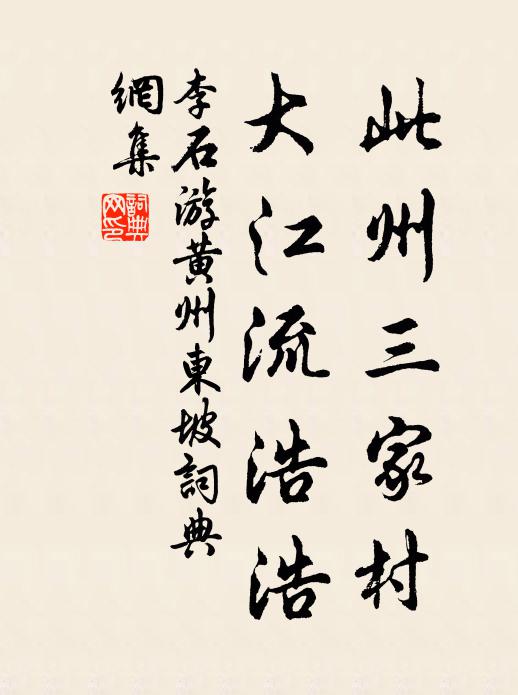 此州三家村
大江流浩浩
李石游黄州東坡詞典
網集
詞典
网印